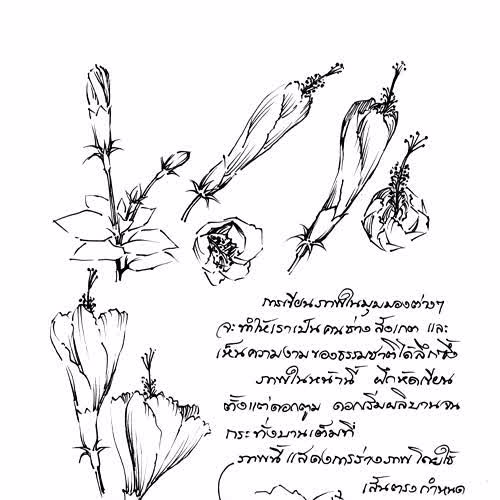 การเขียนภาพในมุมมองต่างๆ
จะทำให้เราเป็นคนช่างสังเกต และ
เห็นความงามของธรรมชาติได้ลึกซึ้ง
ภาพในหน้านี้ ฝึกหัดเขียน
ตั้งแต่ดอกตูม ดอกเริ่มผลิบานจน
กระทั่งบานเต็มที่
ภาพนี้แสดงการร่างภาพ โดยใช้
เส้นตรงกำหนด